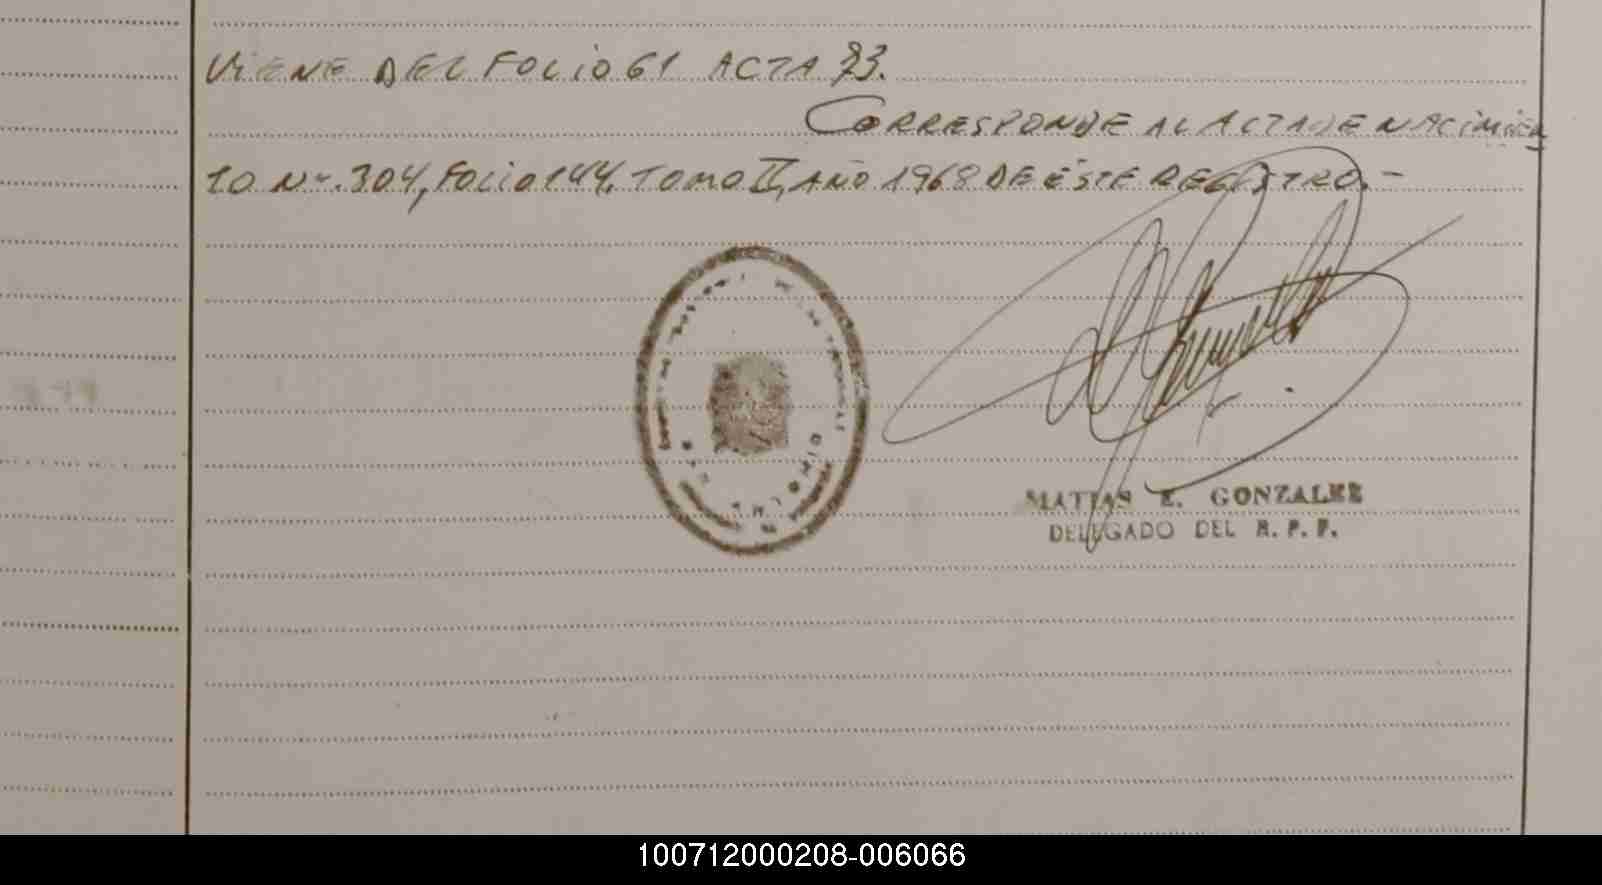 VIENE DEL FOLIO 61 ACTA 93.
CORRESPONDE AL ACTA DE NACIMIEN
TO Nº. 304, FOLIO 144. TOMO II, AÑO 1968 DE ÉSTE REGISTRO.-
MATIAS E. GONZALEZ
DELEGADO DEL R. P. P.
100712000208-006066